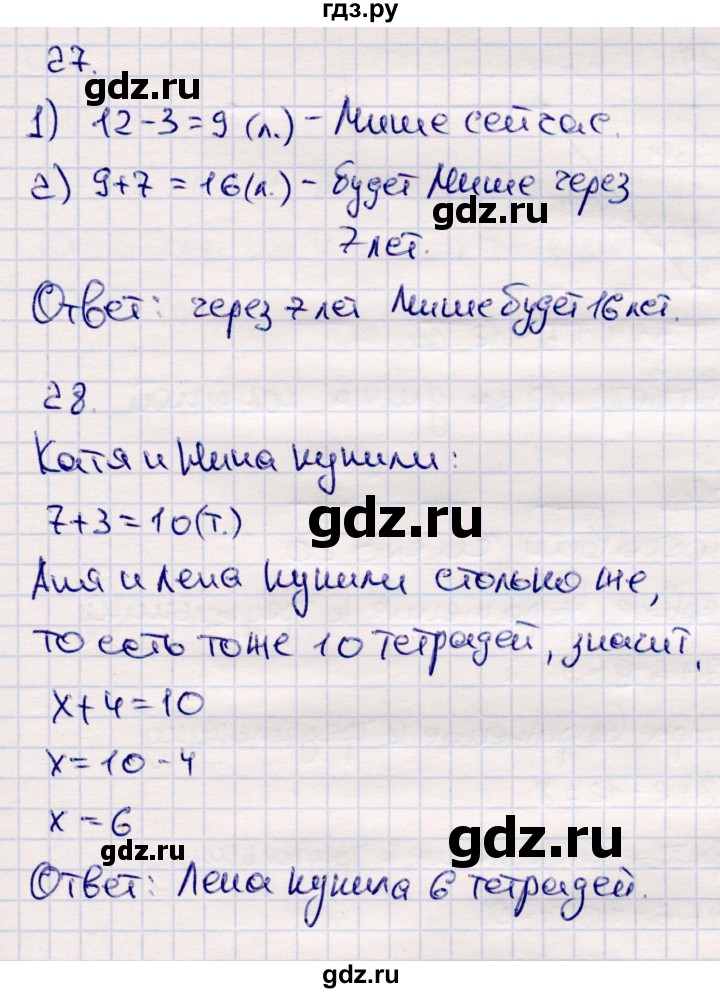 гдз.ру
27.
gdz.ru
1) 12-3=9 (л.) - Мише сейчас.
2) 9+7 = 16(л.) - будет Мише через
gdz.ru
7 лет.
Ответ: через 7 лет Мише будет 16 лет.
28.
Катя и Нина купили:
7+3=10(т.)
gdz.ru
Аня и Лена купили столько же,
то есть тоже 10 тетрадей, значит,
x+4=10
x=10-4
x=6
gdz.ru
gdz.ru
Ответ: Лена купила 6 тетрадей.
gdz.ru